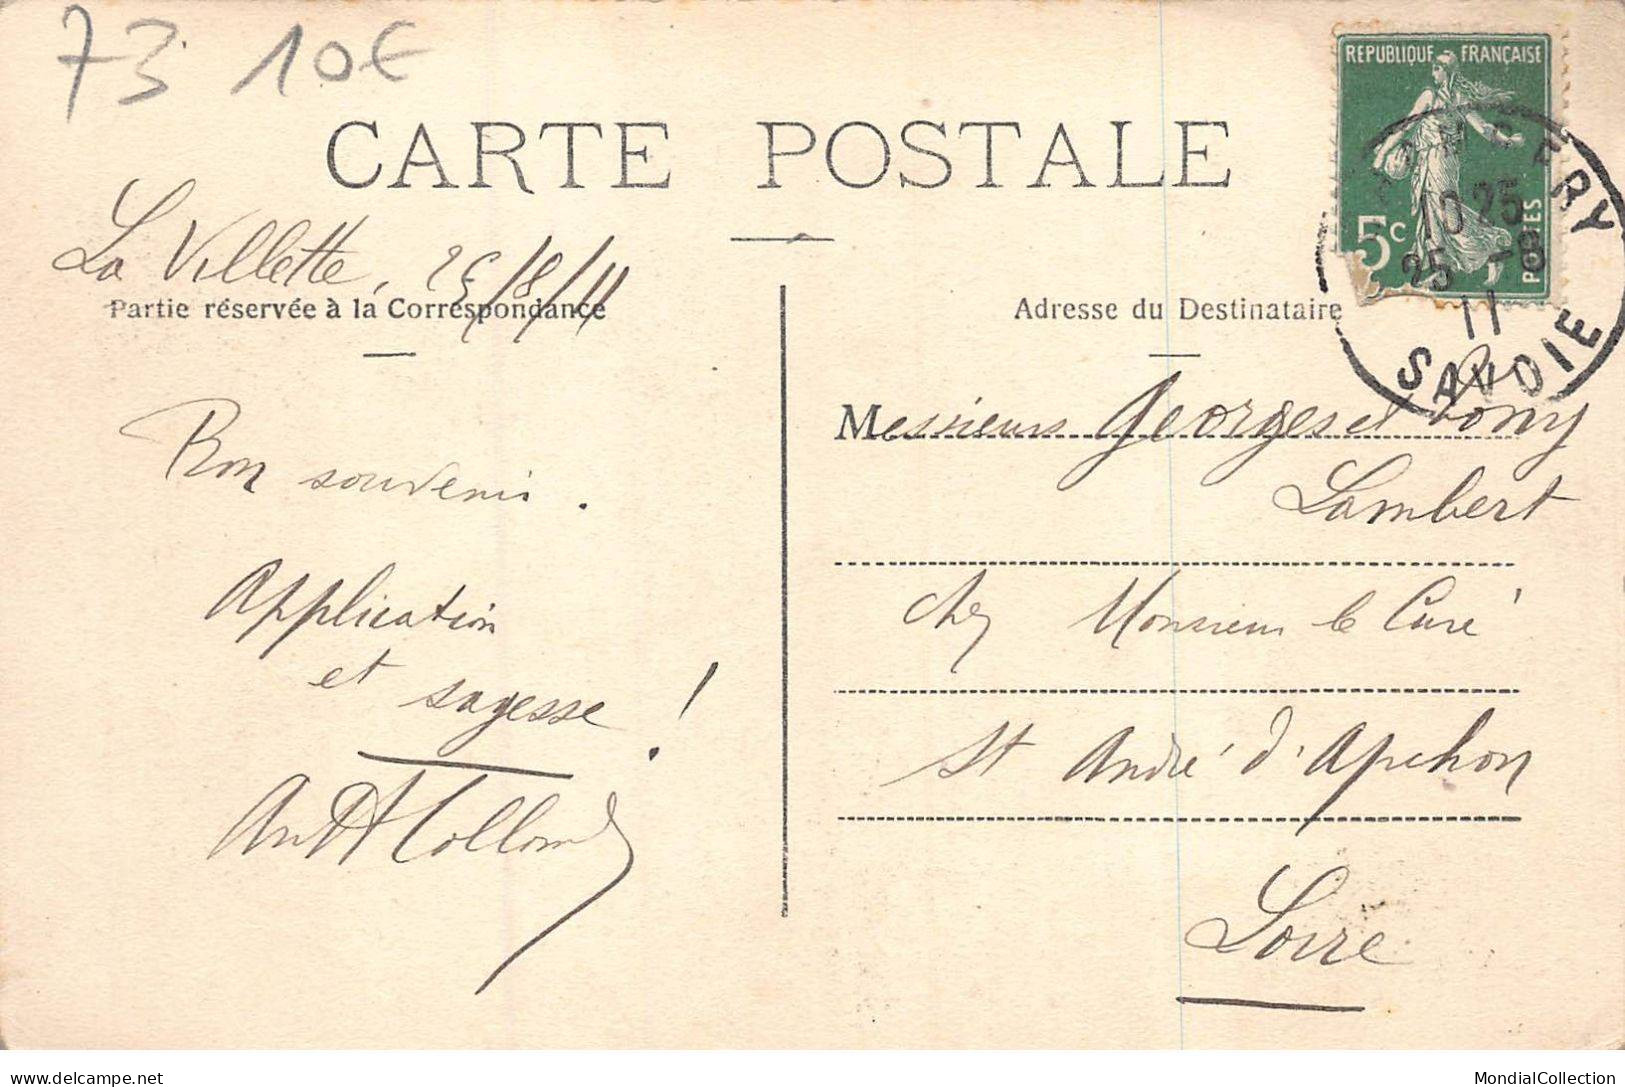 73 10€
CARTE POSTALE
REPUBLIQUE FRANÇAISE
5c
POSTES
10 25
25 -8
11
SAVOIE
La Villette, 25/8/11
Partie réservée à la Correspondance
Adresse du Destinataire
Bon souvenir.
Application
et sagesse !
Messieurs Georges et Tony
Lambert
chez Monsieur le Curé
St André d'Apchon
Loire
MondialCollection